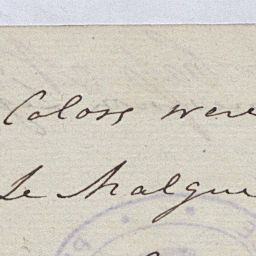 Colors were
Le Malgue